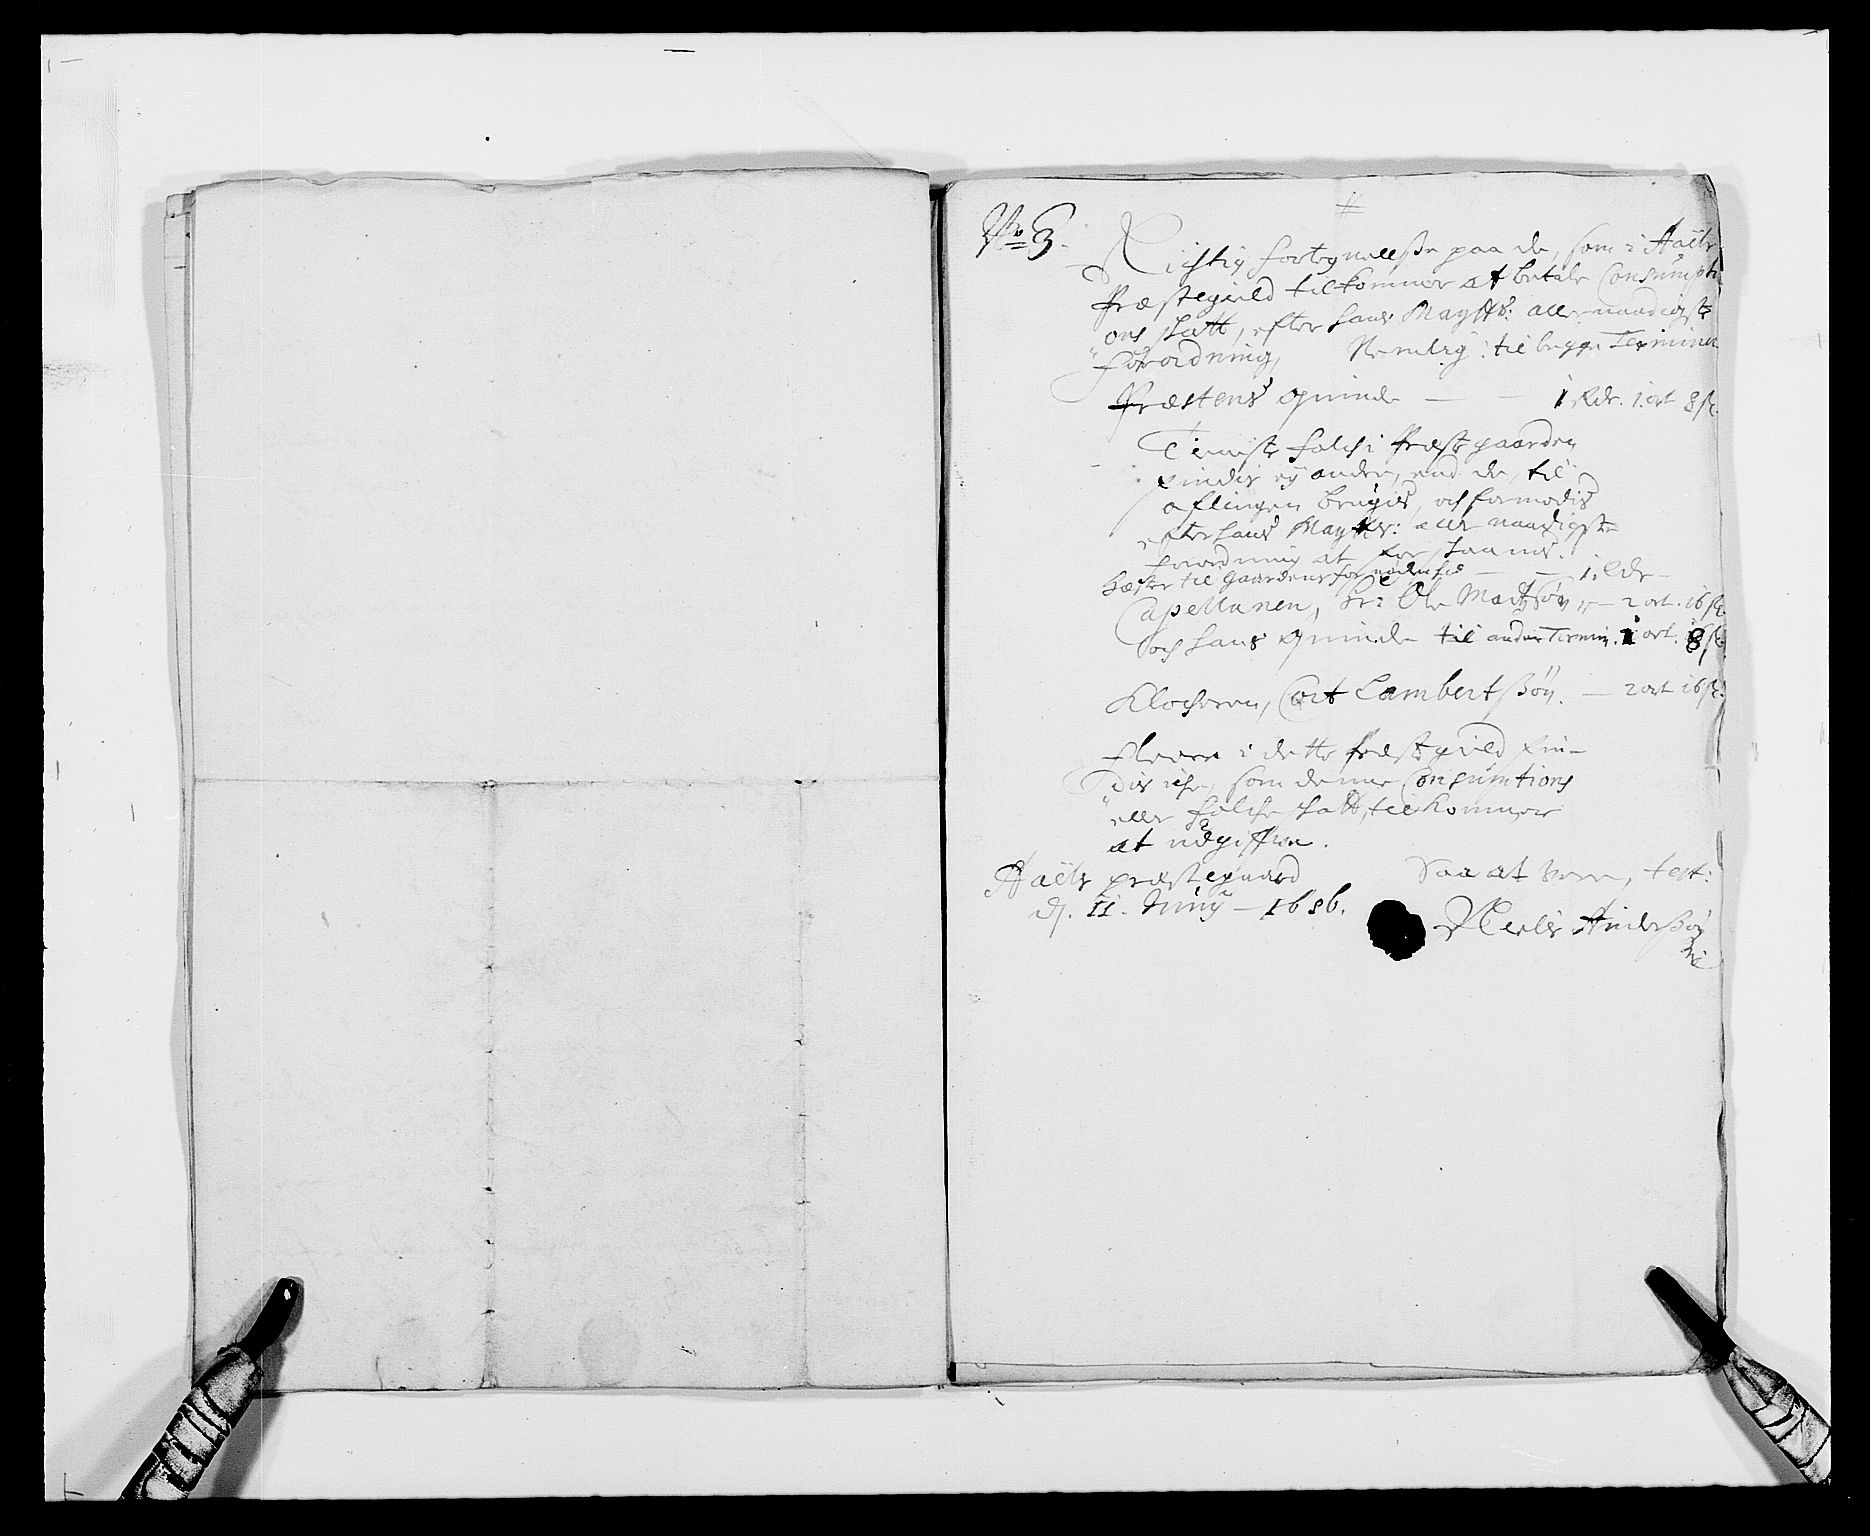 No 3.
Richtig fortegnelsse paa de, som i Aals
Præstegield tilkommer at betale Consumpti
ons skatt, efter hans Maytts: allernaadigste
forordning, Nemlig: til begge Terminer
Præstens quinde — — 1 Rdr. 1. ort 8 s.
Tieniste folch i Præstegaarden
findis ej andre, end de, til
aflingen brugis, och formodis
efter hans Maytts: aller naadigste
forordning at forskaanis.
Hæster til gaardens fornødenhed — — 1. Rdr —
Capellanen, Hr: Ole Madtzsøn — 2 ort. 16 s.
och hans quinde til anden Termin. 1 ort. 8 s.
Klocheren, Cort Lambertsøn. — 2 ort 16 s.
Fleere i dette Præstegield fin-
dis iche, som denne Consumtions
eller folche skatt, tilkommer
at udgiffue.
Aals præstegaard Saa at vere, test:
dj. 11. Junij — 1686.
Neils Anderssøn